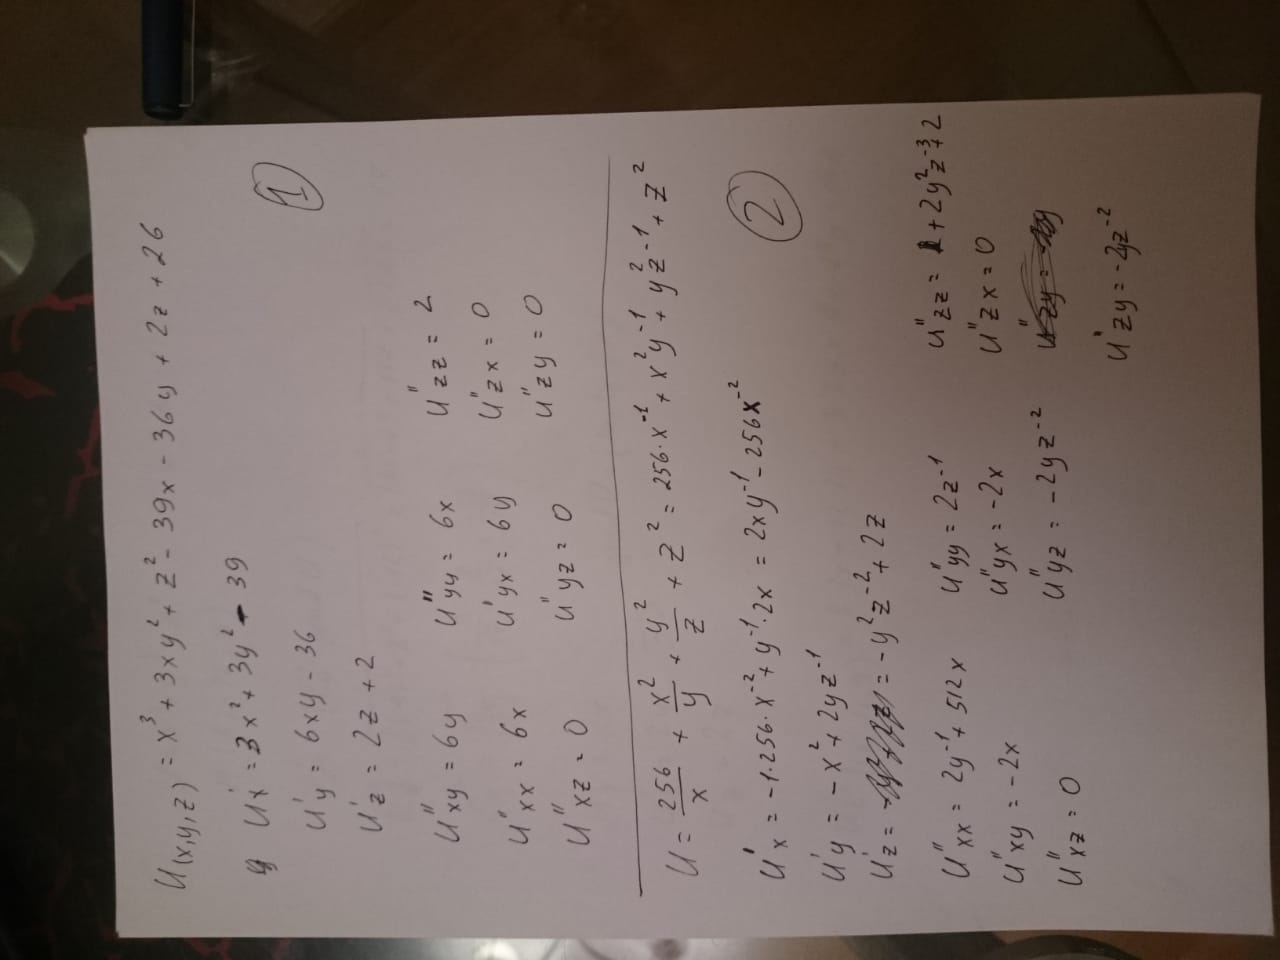 U(x,y,z) = x³ + 3xy² + z² - 39x - 36y + 2z + 26
U'x = 3x² + 3y² - 39
①
U'y = 6xy - 36
U'z = 2z + 2
U''xy = 6y U''yy = 6x U''zz = 2
U''xx = 6x U''yx = 6y U''zx = 0
U''xz = 0 U''yz = 0 U''zy = 0
U = 256/x + x²/y + y²/z + z² = 256·x⁻¹ + x²y⁻¹ + y²z⁻¹ + z²
U'x = -1·256·x⁻² + y⁻¹·2x = 2xy⁻¹ - 256x⁻²
②
U'y = -x² + 2yz⁻¹
U'z = = -y²z⁻² + 2z
U''xx = 2y⁻¹ + 512x U''yy = 2z⁻¹ U''zz = + 2y²z⁻³ + 2
U''xy = -2x U''yx = -2x U''zx = 0
U''xz = 0 U''yz = -2yz⁻² U''zy =
U'zy = -2yz⁻²